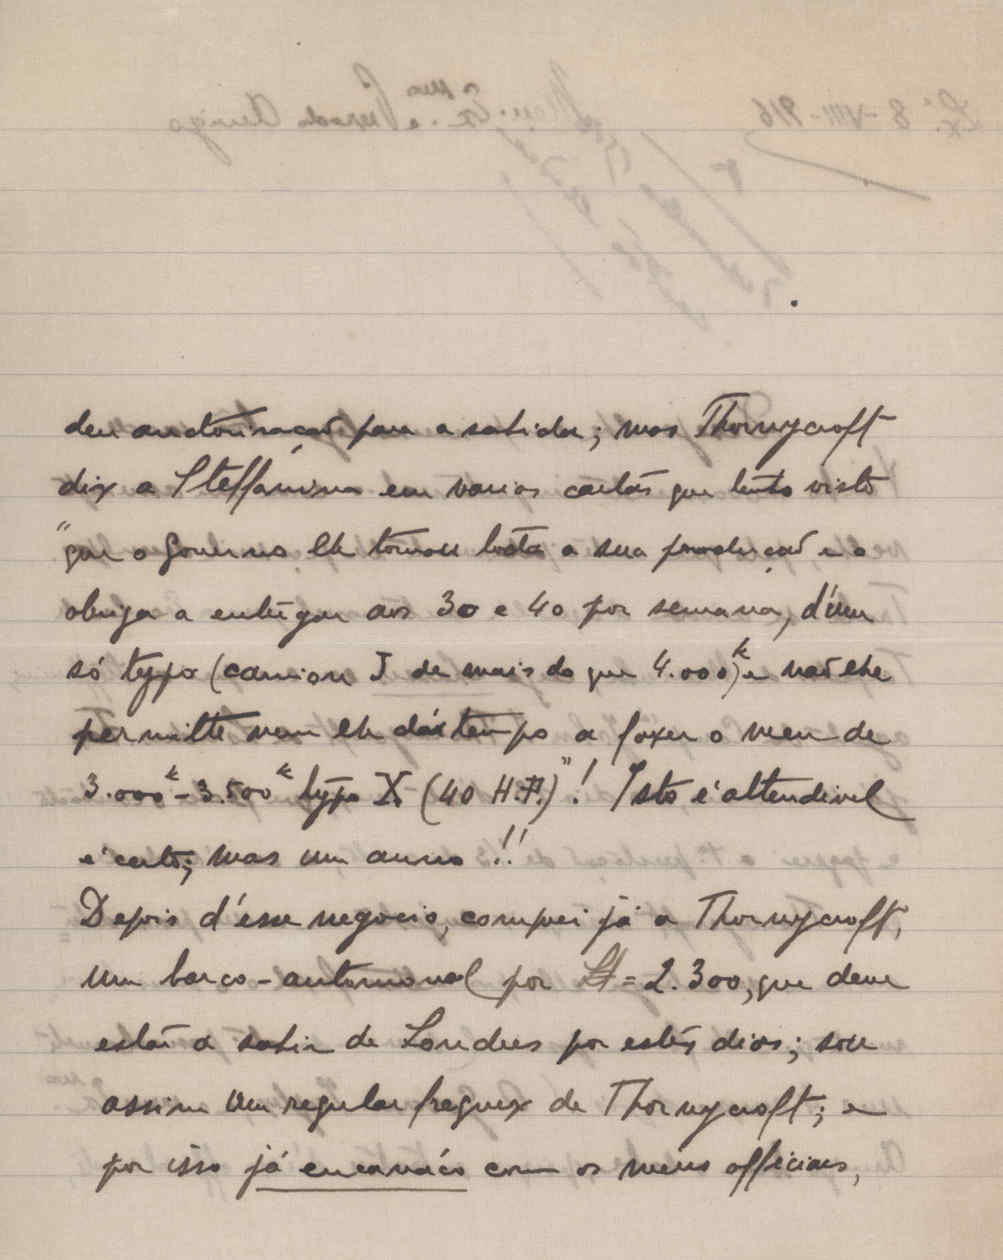 deu auctorisação para a sahida; mas Thornycroft
diz a Steffanina em varias cartas que tenho visto
"que o Governo lhe tomou toda a sua producção e o
obriga a entregar aos 30 e 40 por semana, d'um
só typo (camion J de mais do que 4.000)k e não lhe
permitte nem lhe dá tempo a fazer o meu de
3.000k - 3.500k typo X (40 H.P.)"! Isto é attendivel
é certo; mas um anno!!
Depois d'esse negocio, comprei já a Thornycroft,
um barco-automovel por £ = 2.300, que deve
estar a sahir de Londres por estes dias; sou
assim um regular freguez de Thornycroft; e
por isso já encavaco com os meus officiaes,